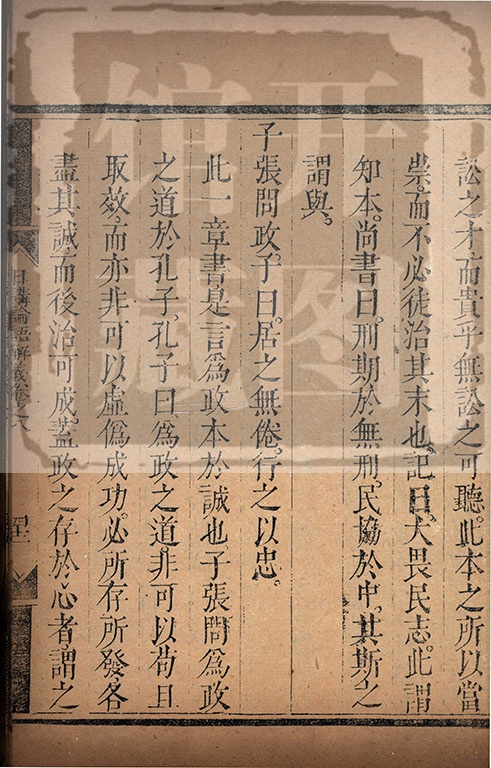 訟之才而貴乎無訟之可聽此本之所以當
崇而不必徒治其末也記曰大畏民志此謂
知本尚書曰刑期於無刑民協於中其斯之
謂與
子張問政子曰居之無倦行之以忠
此一章書是言爲政本於誠也子張問爲政
之道於孔子孔子曰爲政之道非可以苟且
取效而亦非可以虛僞成功必所存所發各
盡其誠而後治可成蓋政之存於心者謂之
日講論語解義卷之八
開圖
館藏